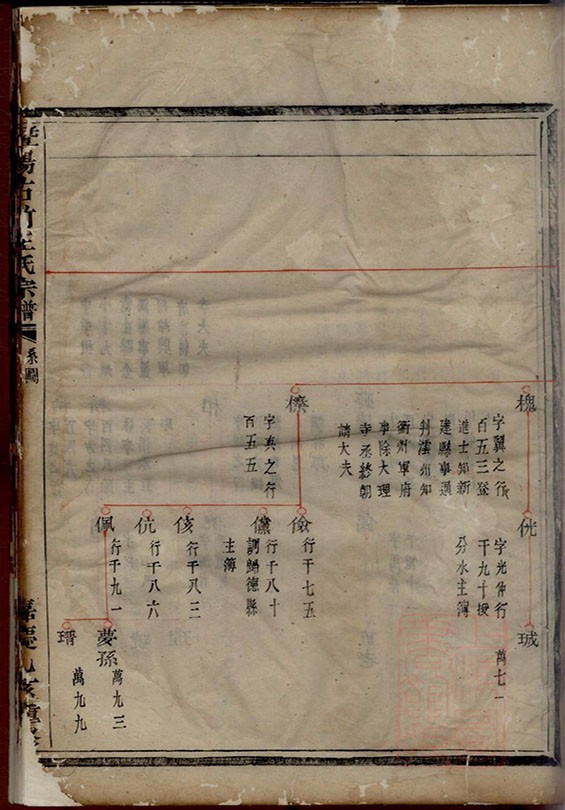 槐
字翼之行
百五三登
進士知新
建縣事通
判濠州知
衢州軍府
事除大理
寺丞終朝
請大夫
侊
字光仲行
千九十授
分水主簿
珹
萬七一
檫
字真之行
百五五
儉
行千七五
儻
行千八十
調歸德縣
主簿
侅
行千八三
伉
行千八六
佩
行千九一
夢孫
萬九三
瑨
萬九九
暨陽古竹王氏宗譜
系圖
嘉慶